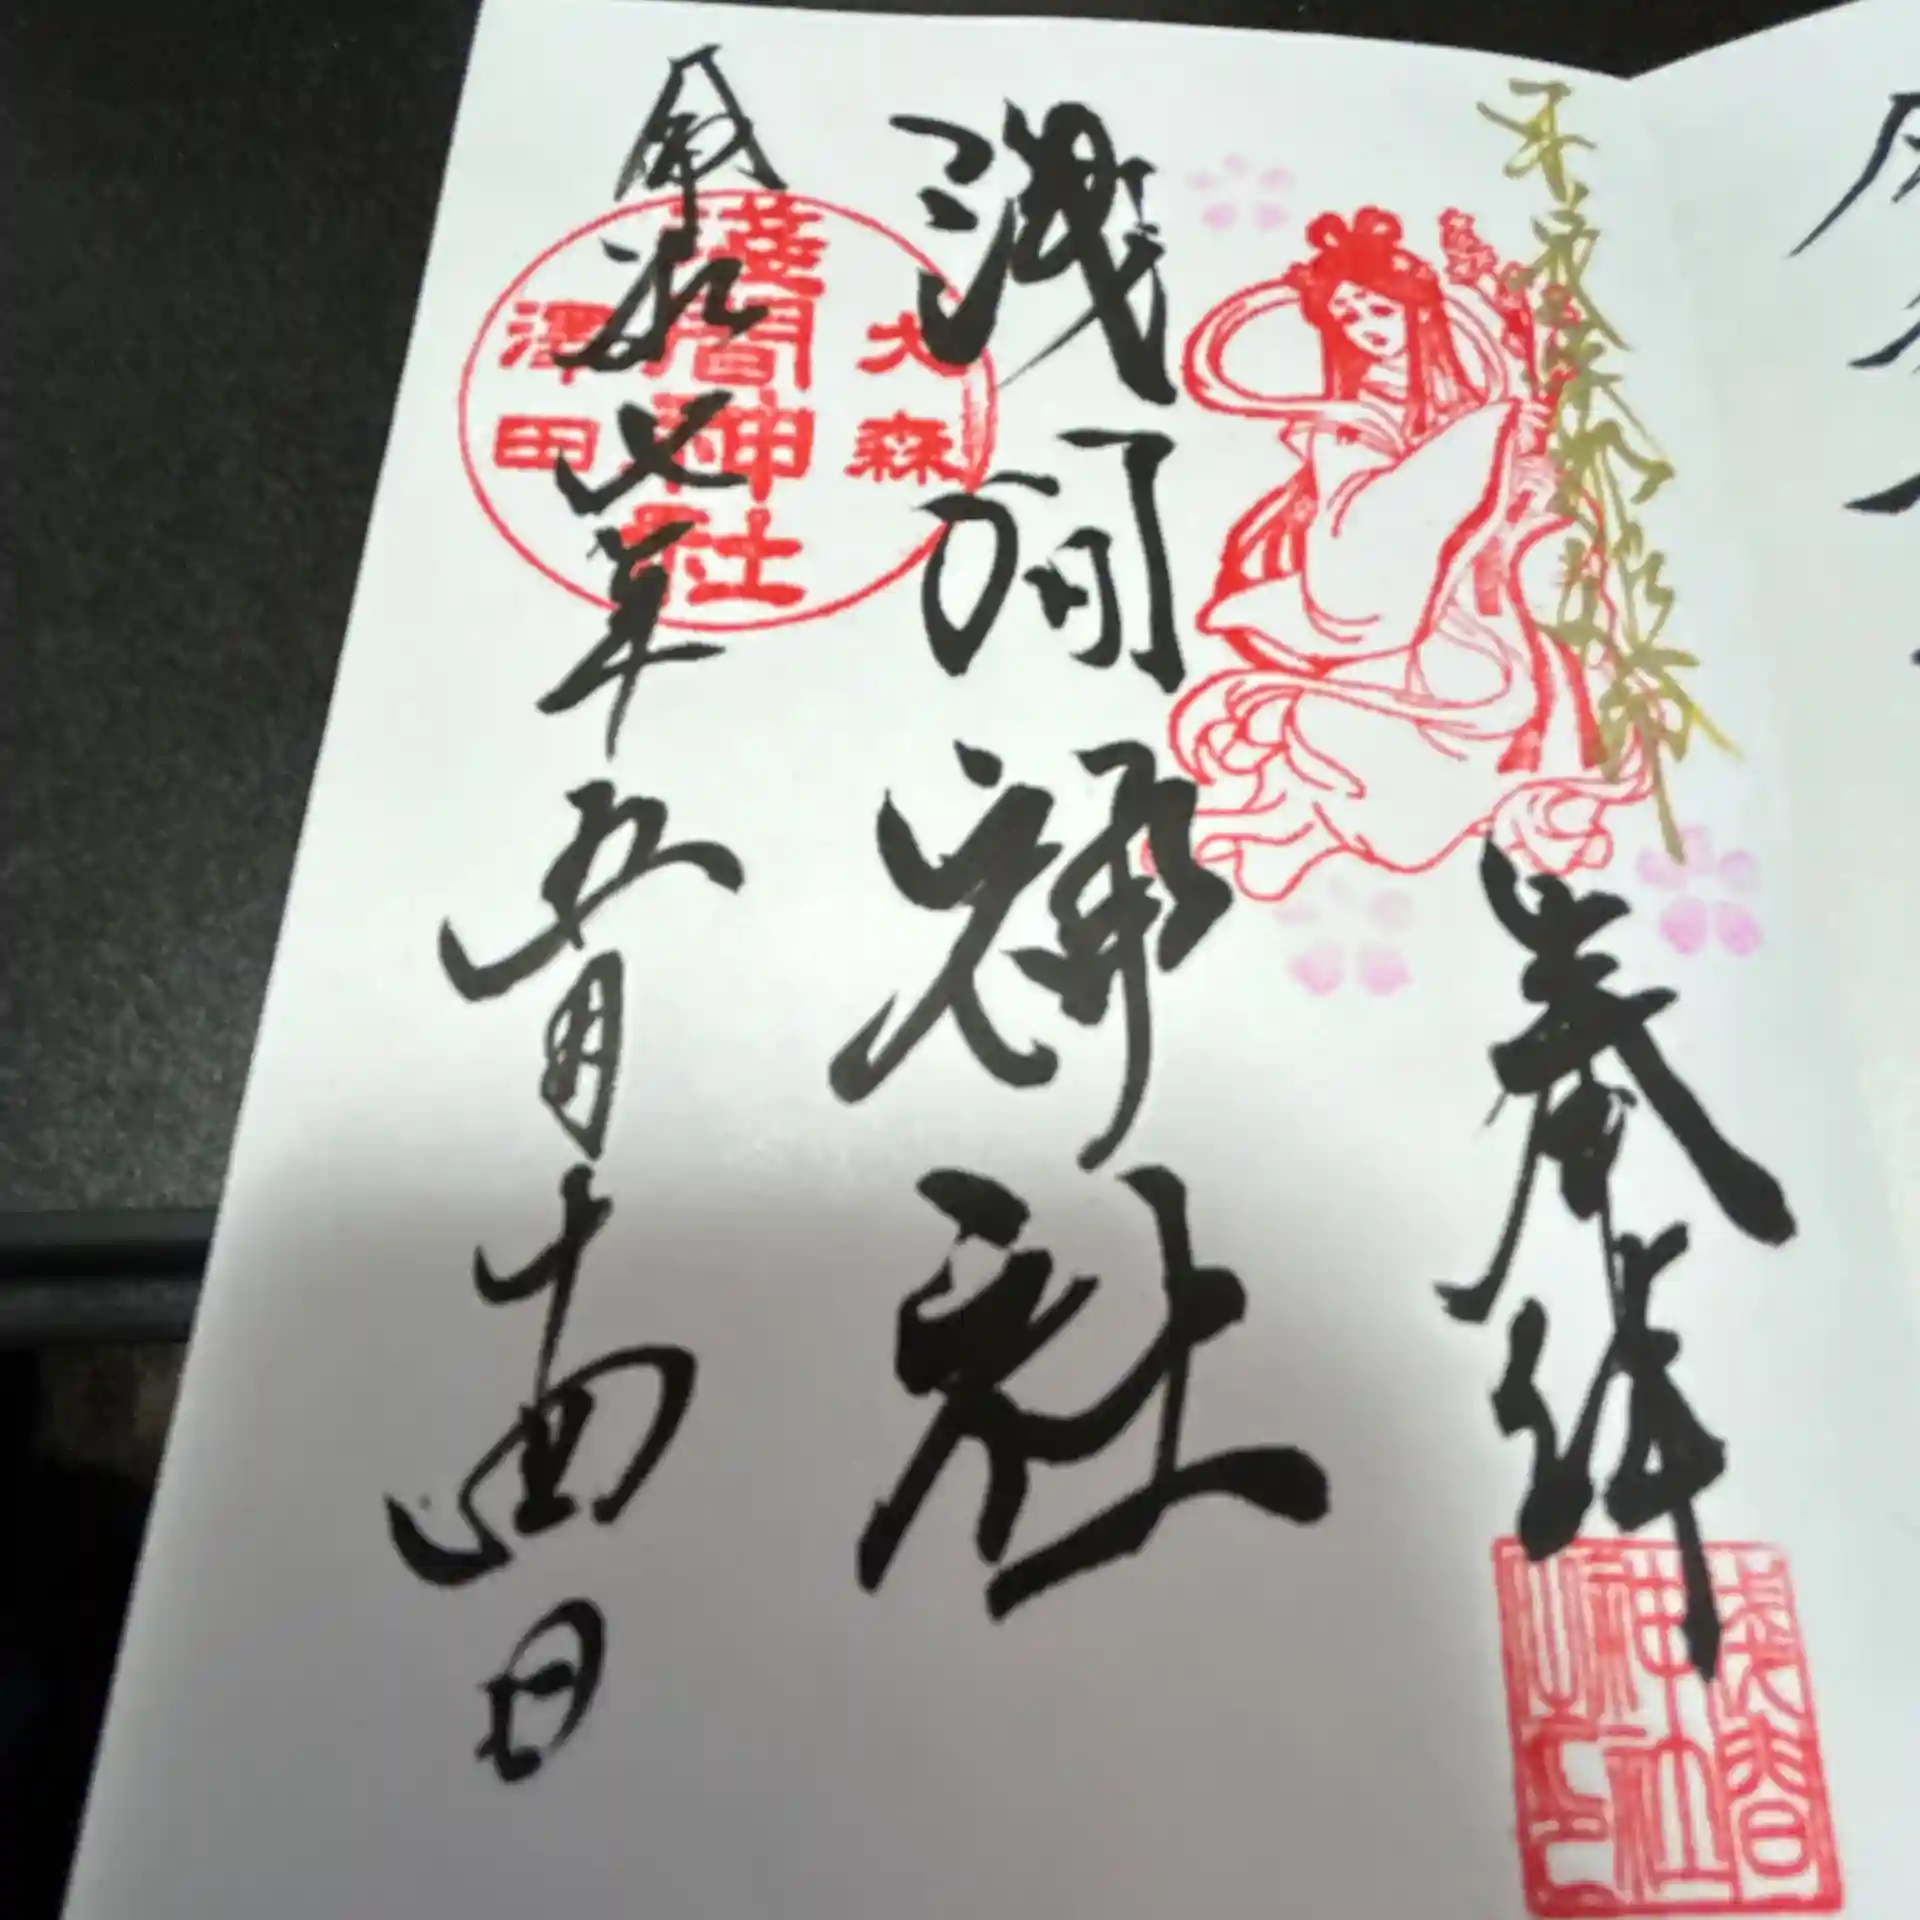 奉拝
浅間神社
令和七年五月十四日
大森
淺間神社
澤田
淺間神社之印